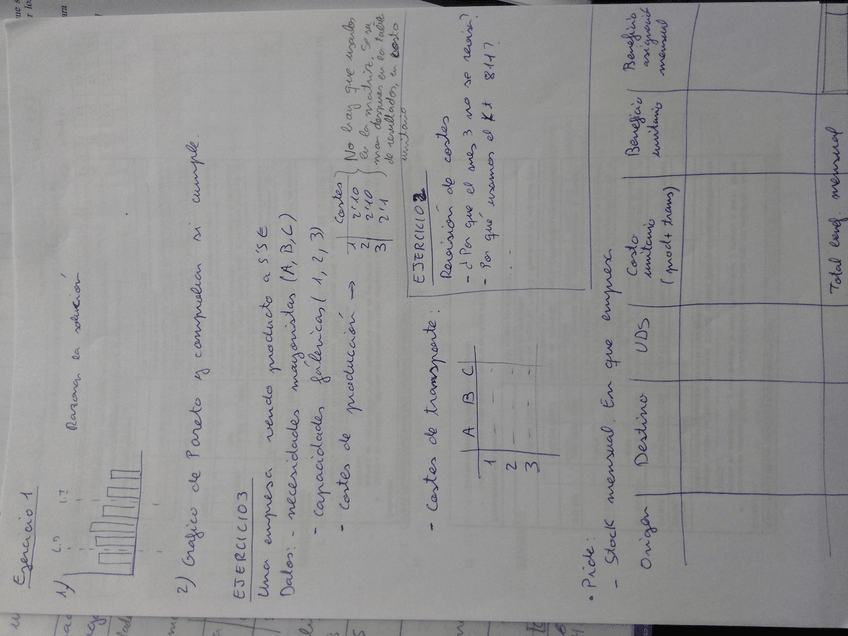 Ejercicio 1
1)
Razonar la solución
2) Gráfico de Pareto y comprobar si cumple
EJERCICIO 3
Una empresa vende producto a 5'5€
Datos: - necesidades mayoristas (A, B, C)
- capacidades fábricas (1, 2, 3)
- Costes de producción →
Costes
1 2'10
2 2'10
3 2'1
No hay que usarlos
en la matriz. Se su
man despues en la tabla
de resultados, en costo
unitario
- Costes de transporte:
A B C
1
2
3
EJERCICIO 2
Revisión de costes
- ¿Por que el mes 3 no se revisa?
- Por qué usamos el Kt 811?
...
• Pide:
- Stock mensual. En que empresa
Origen
Destino
UDS
Costo
unitario
(prod + trans)
Beneficio
unitario
Beneficio
asignació
mensual
Total mensual